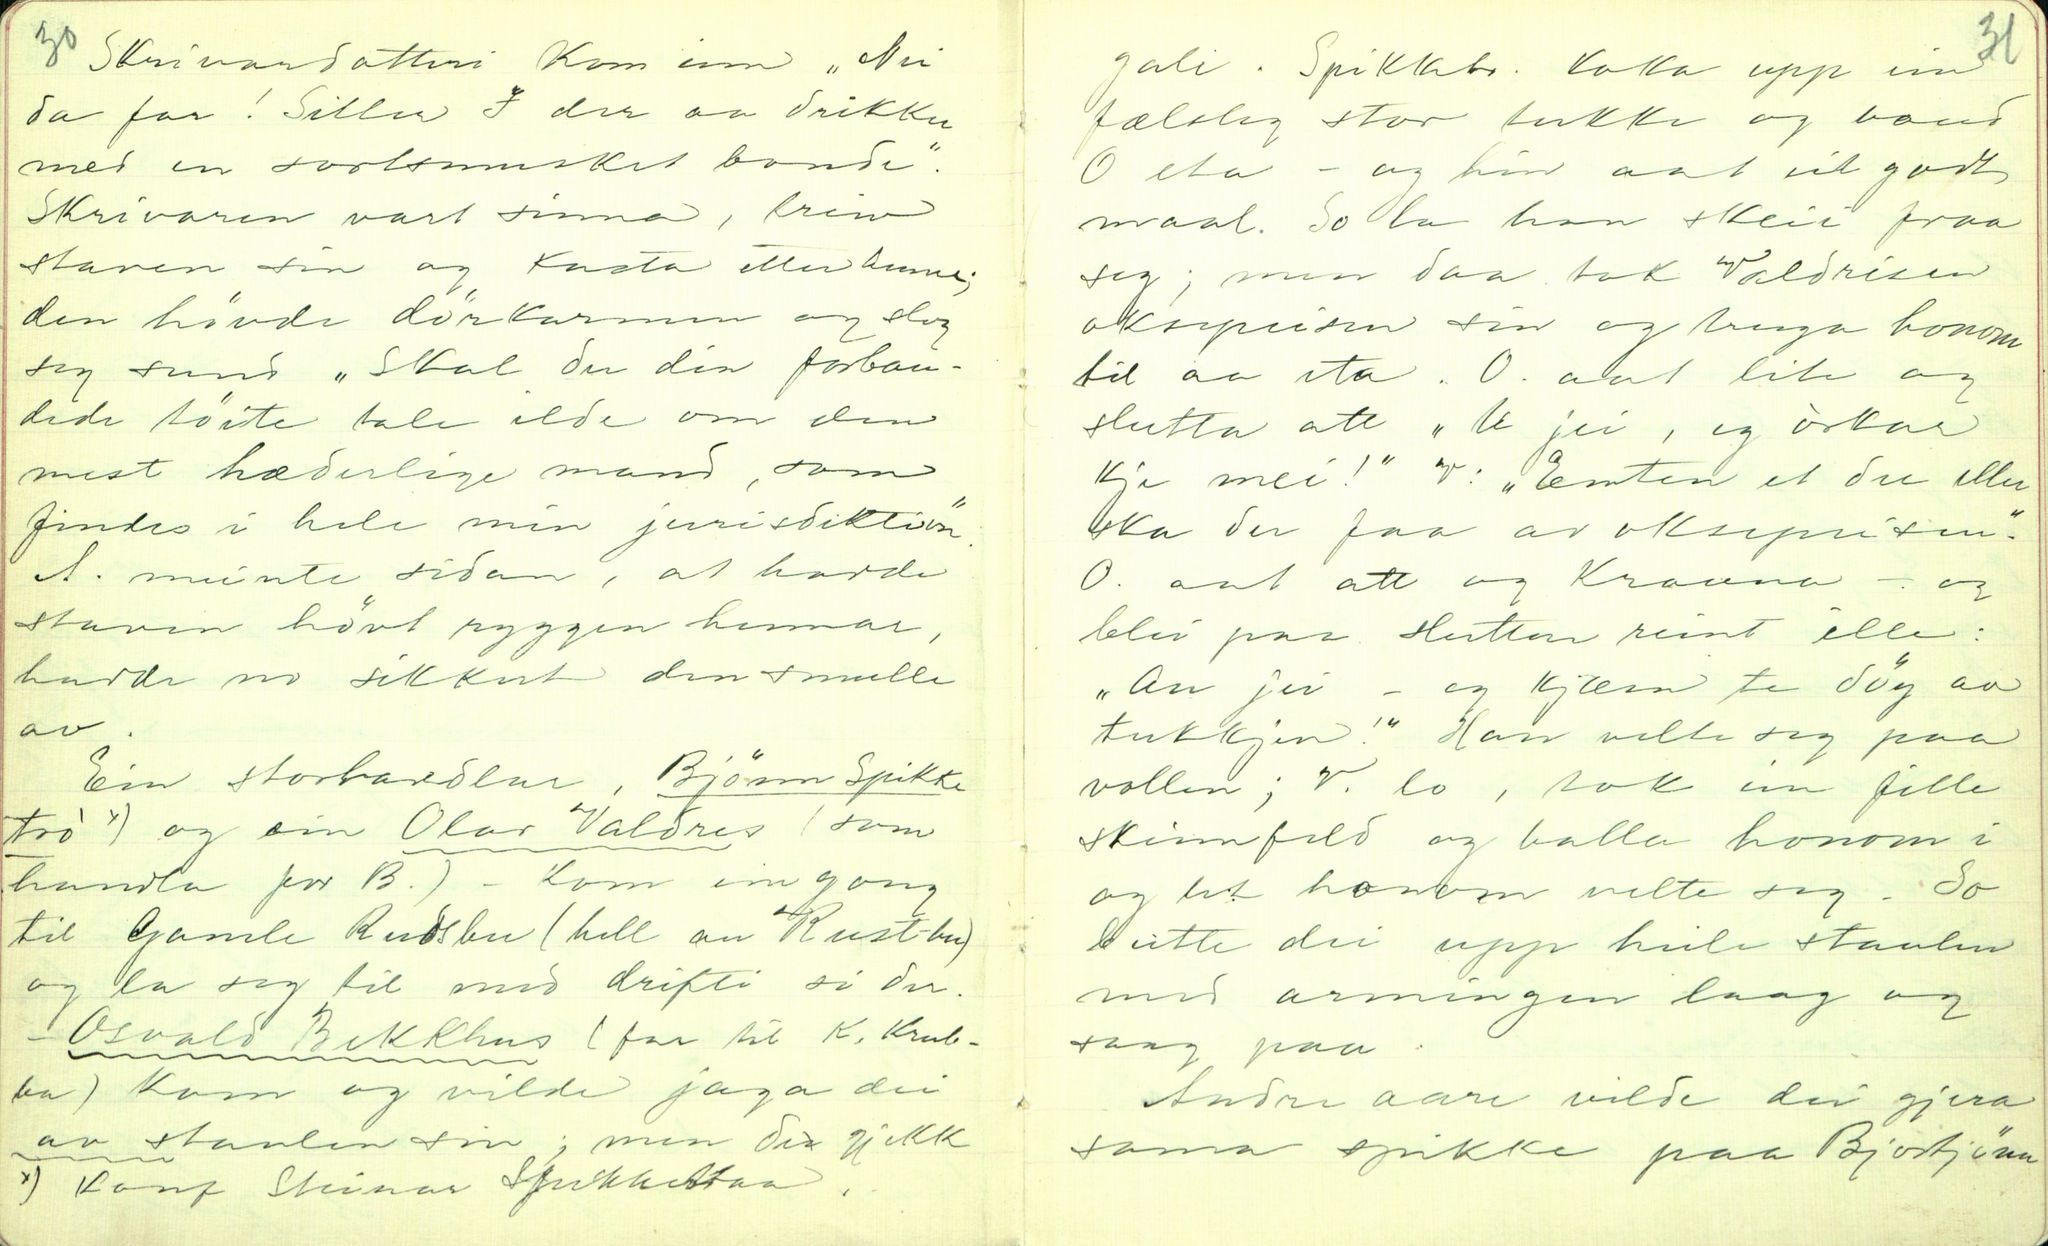 30
Skrivardotteri kom inn „Nei
da far! Sitter I der aa drikker
med en sortsmusket bonde".
Skrivaren vart sinna, treiv
staven sin og kasta etter henne;
den hövde dörkarmen og slog
seg sund „Skal du din forban-
dede töite tale ilde om den
mest hæderlige mand, som
findes i hele min jurisdiktion".
A. meinte sidan, at hadde
staven hövt ryggen hennar,
hadde no sikkert den smelle
av.
Ein storhandlar, Björn Spikke
trö x) og ein Olav Valdres (som
handla for B.) – kom ein gong
til Gamle Rudsbu (hell au Rust-bu)
og la seg til med drifti si der.
– Osvald Bekkhus (far til K. Krub-
ba) kom og vilde jaga dei
av staulen sin; men dei gjekk
x) Konf Steinar Spikkestaa.
31
gali. Spikkebr. koka upp ein
fælsleg stor tukke og baud
O eta – og hin aat eit godt
maal. So la han skeii fraa
seg; men daa tok Valdrisen
oksepeisen sin og truga honom
til aa eta. O. aat lite og
slutta att „U jei, eg örkar
kje mei!" V: „Enten et du eller
ska du faa av oksepeisen".
O. aat att og kravna – og
blei paa slutten reint ille:
„Au jei – eg kjæm te döy av
tukkjen!" Han velte seg paa
vollen; V. lo, tok ein fille
skinnfeld og balla honom i
og let honom velte seg. So
leitte dei upp heile staulen
med armingen laag og
saag paa.
Andre aare vilde dei gjera
sama spikke paa Bjortjönn